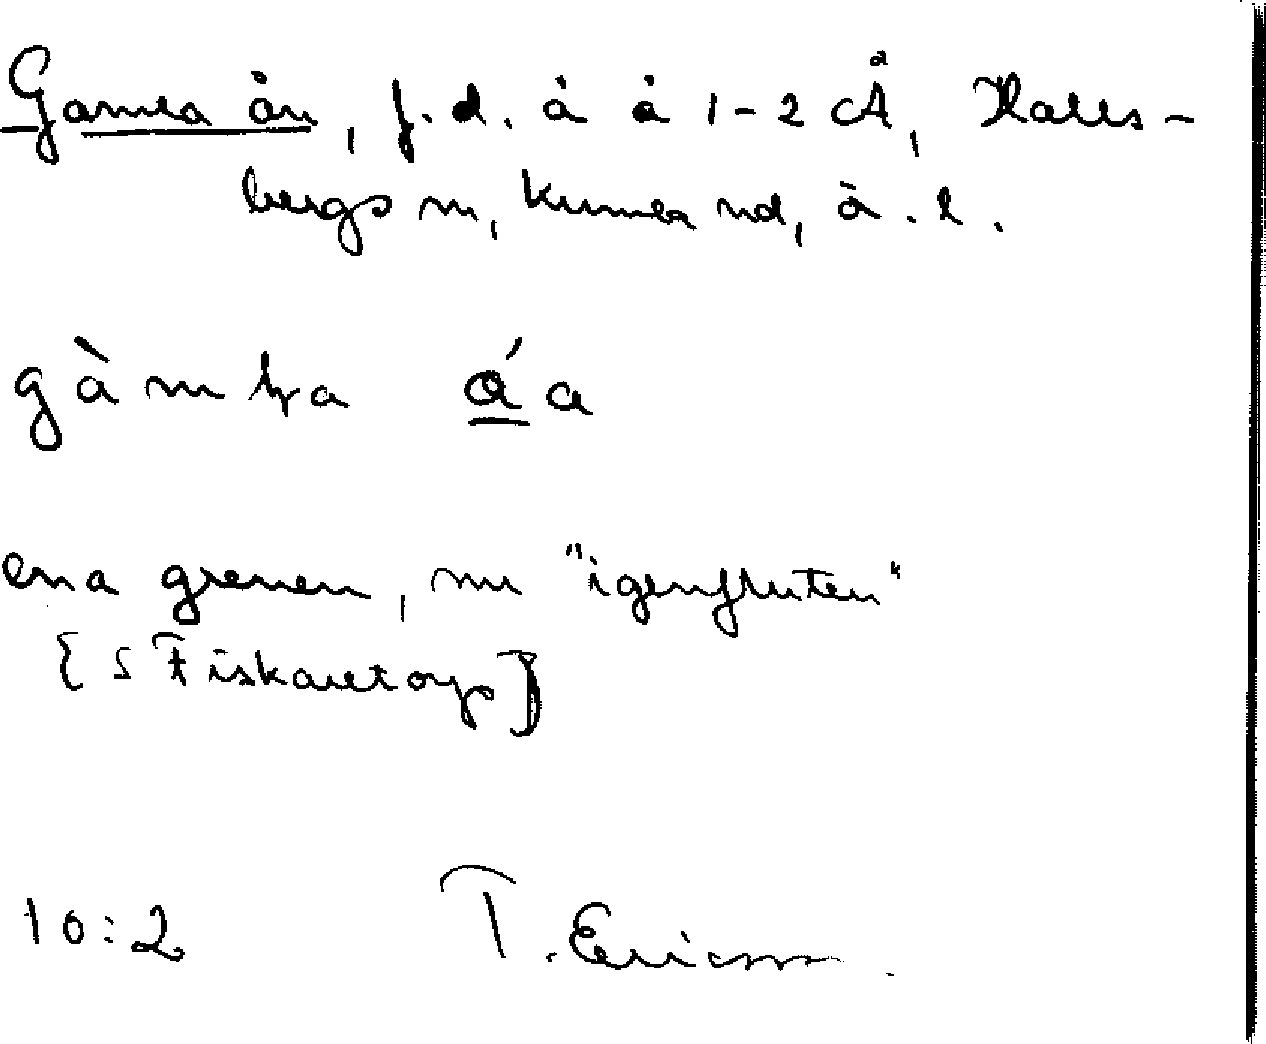 Gamla ån, f.d. å å 1-2 Å, Halls-
bergs sn, Kumla hd, Ö. l.
gàmḷa ǻa
ena grenen, nu "igenfluten"
[S Fiskaretorp]
10:2 T. Ericsson.